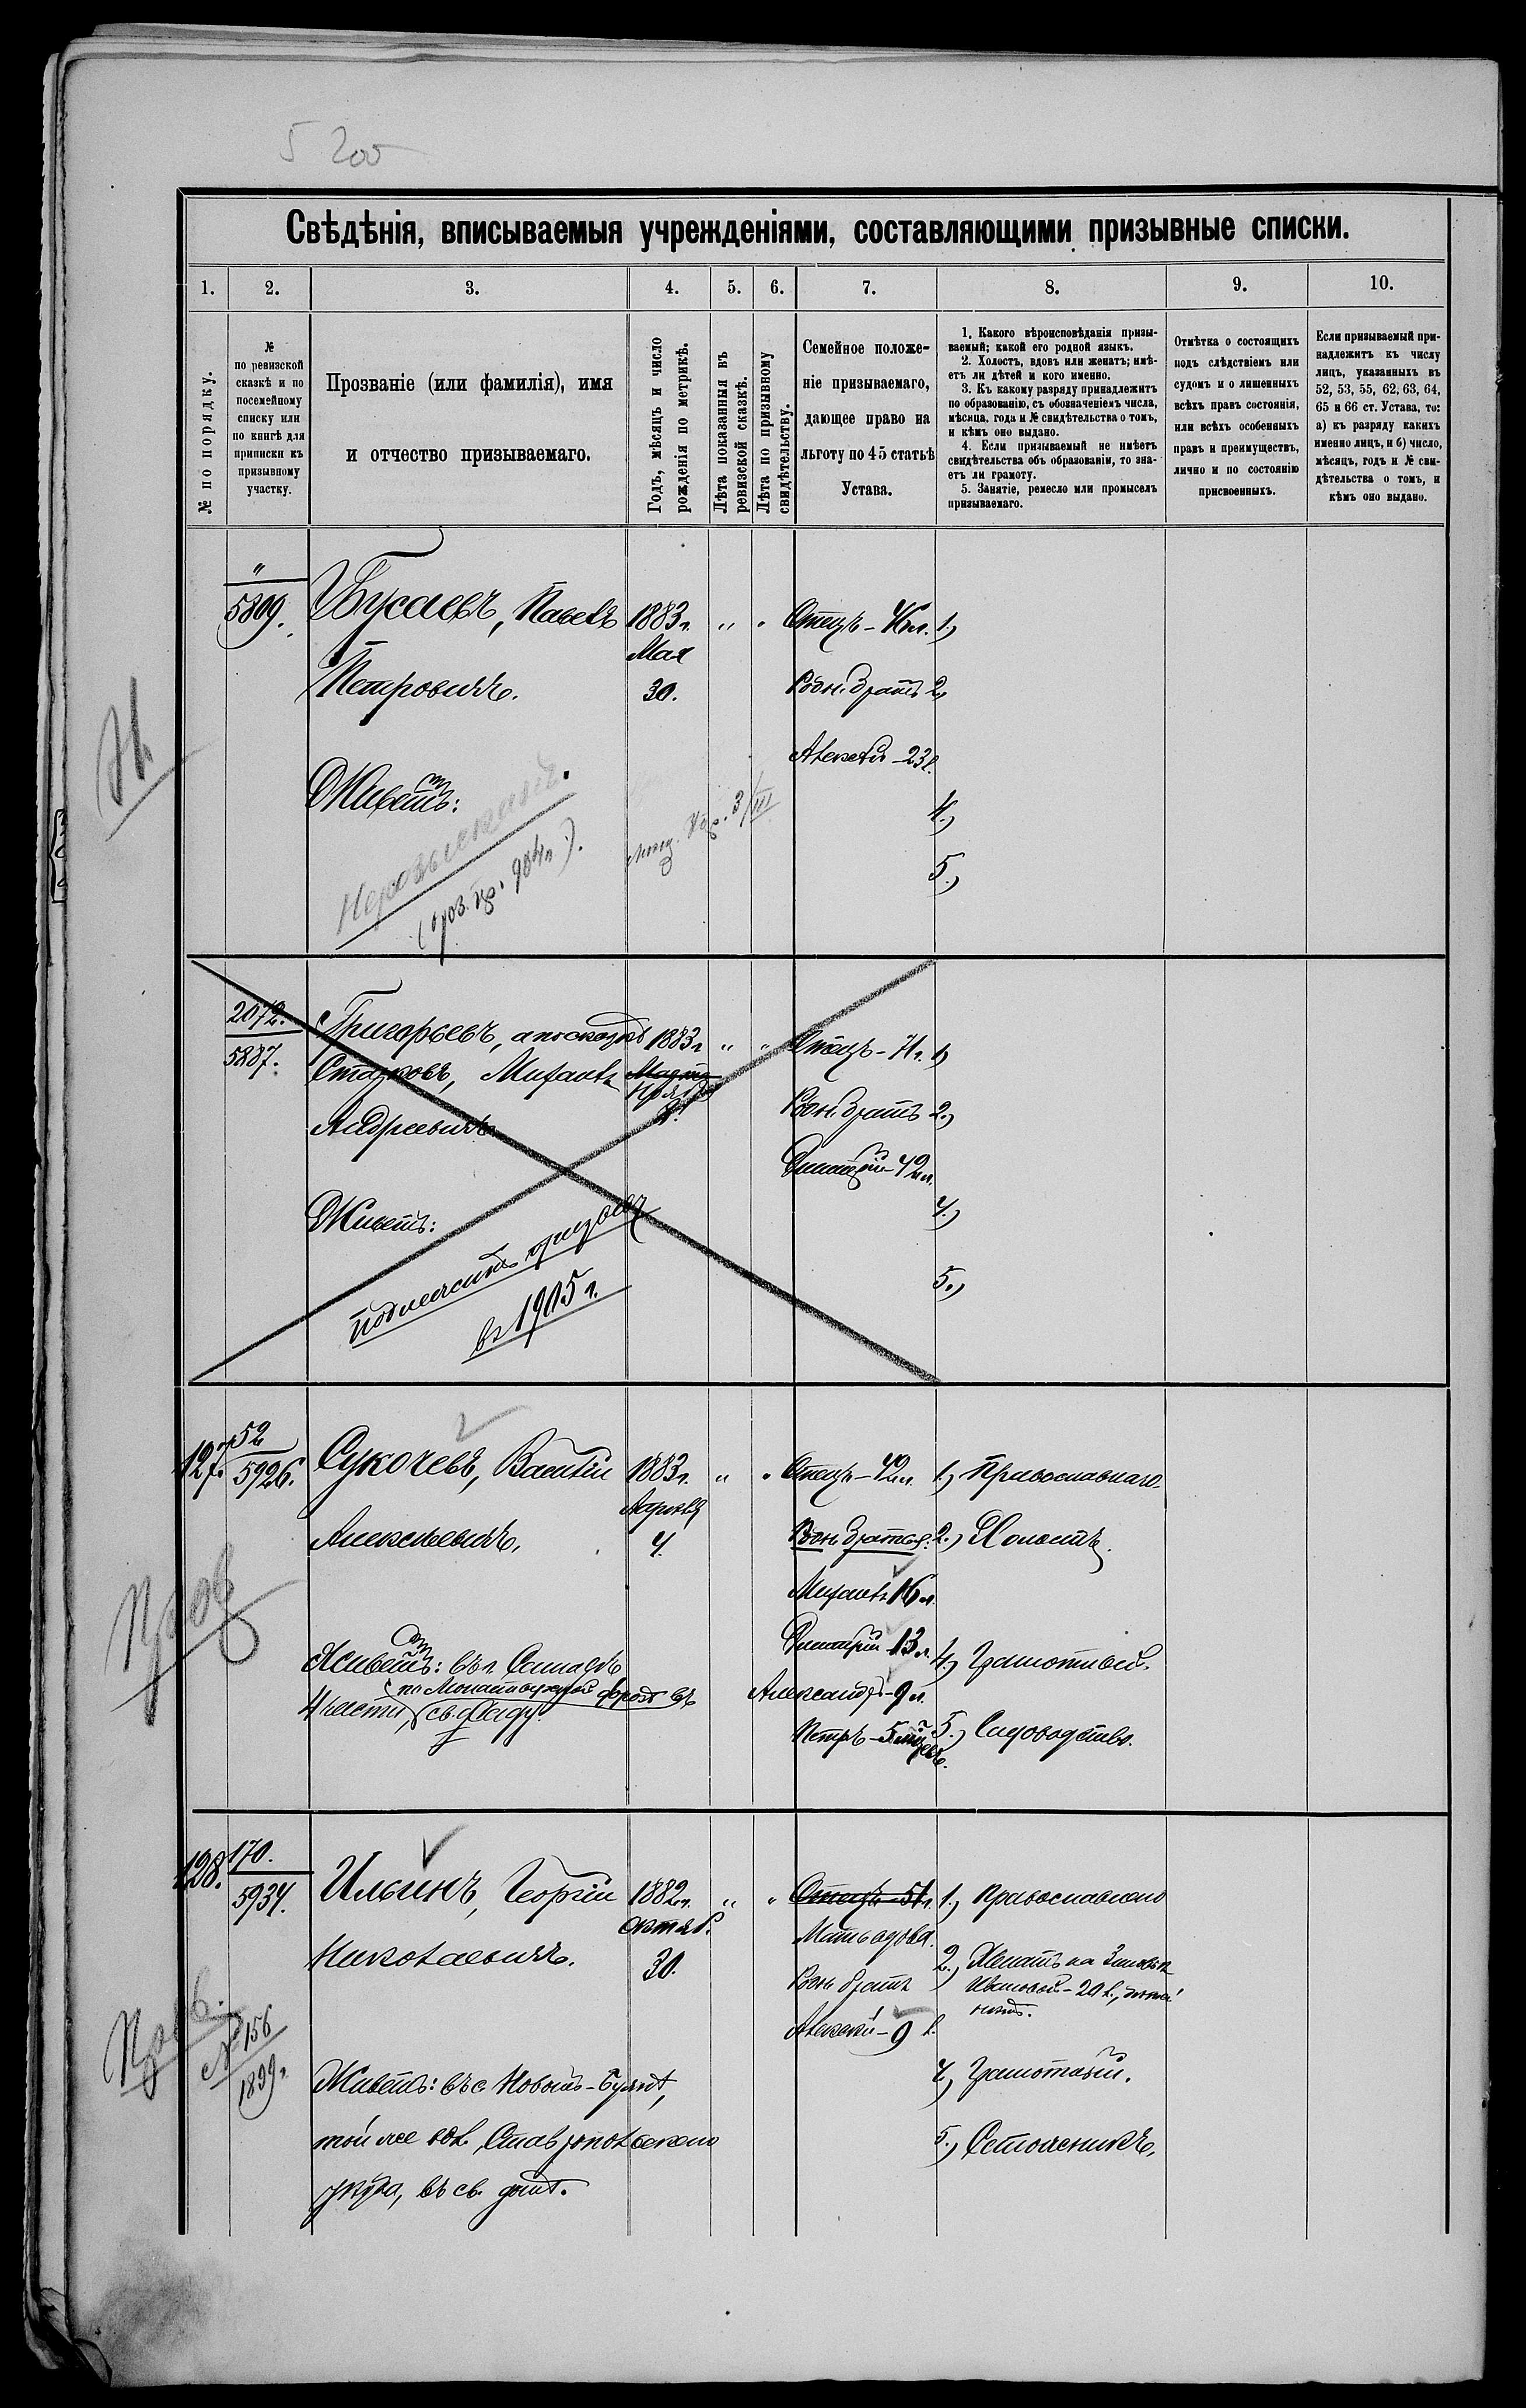 5 200
Свѣдѣнія, вписываемыя учрежденіями, составляющими призывные списки.
1. 2. 3. 4. 5. 6. 7. 8. 9. 10.
№ по порядку.
№
по ревизской
сказкѣ и по
посемейному
списку или
по книгѣ для
приписки къ
призывному
участку.
Прозваніе (или фамилія), имя
и отчество призываемаго.
Годъ, мѣсяцъ и число
рожденія по метрикѣ.
Лѣта показанныя въ
ревизской сказкѣ.
Лѣта по призывному
свидѣтельству.
Семейное положе-
ніе призываемаго,
дающее право на
льготу по 45 статьѣ
Устава.
1. Какого вѣроисповѣданія призы-
ваемый; какой его родной языкъ.
2. Холостъ, вдовъ или женатъ; имѣ-
етъ ли дѣтей и кого именно.
3. Къ какому разряду принадлежитъ
по образованію, съ обозначеніемъ числа,
мѣсяца, года и № свидѣтельства о томъ,
и кѣмъ оно выдано.
4. Если призываемый не имѣетъ
свидѣтельства объ образованіи, то зна-
етъ ли грамоту.
5. Занятіе, ремесло или промыселъ
призываемаго.
Отмѣтка о состоящихъ
подъ слѣдствіемъ или
судомъ и о лишенныхъ
всѣхъ правъ состоянія,
или всѣхъ особенныхъ
правъ и преимуществъ,
лично и по состоянію
присвоенныхъ.
Если призываемый при-
надлежитъ къ числу
лицъ, указанныхъ въ
52, 53, 55, 62, 63, 64,
65 и 66 ст. Устава, то:
а) къ разряду какихъ
именно лицъ, и б) число,
мѣсяцъ, годъ и № сви-
дѣтельства о томъ, и
кѣмъ оно выдано.
"
5809. Павелъ 1883 г. " " Отецъ - 1.)
Мая
Петровичъ. 30. Родн. братъ 2.)
Алексѣй - 23 л.
Живетъ: 4.)
5.)
2072.
5887.
Григорьевъ, а по сказкѣ 1883 г. " " Отецъ - 71 г. 1.)
Михаилъ Марта
Андреевичъ Родн. братъ 2.)
Дмитрій - 42 л.
Живетъ: 4.)
подлежитъ призыву 5.)
въ 1905 г.
127. 52
5926. Сукочевъ, Василій 1883 г. " " Отецъ - 42 л. 1.) Православнаго.
Апрѣля
Алексѣевичъ, 4. Родн. братья: 2.) Холостъ.
Михаилъ 16 л.
Дмитрій 13 л. 4.) Грамотный.
Живетъ: въ г. Самарѣ
Александръ - 9 л.
4 части, въ св. саду.
Петръ - 5 мѣсяцевъ. 5.) Садоводство.
128. 170.
5934. Ильинъ, Георгій 1882 г. " " Отецъ 51 г. 1.) Православнаго
Октяб.
Николаевичъ. 30. Мать вдова.
2.) Женатъ на
Ивановой - 20 л.,
Родн. братъ
Алексѣй - 9 л.
№ 156
1899 г.
Живетъ: въ с. Новомъ-Буянѣ, 4.) Грамотный.
той же вол., Ставропольскаго 5.)
уѣзда, въ св. домѣ.